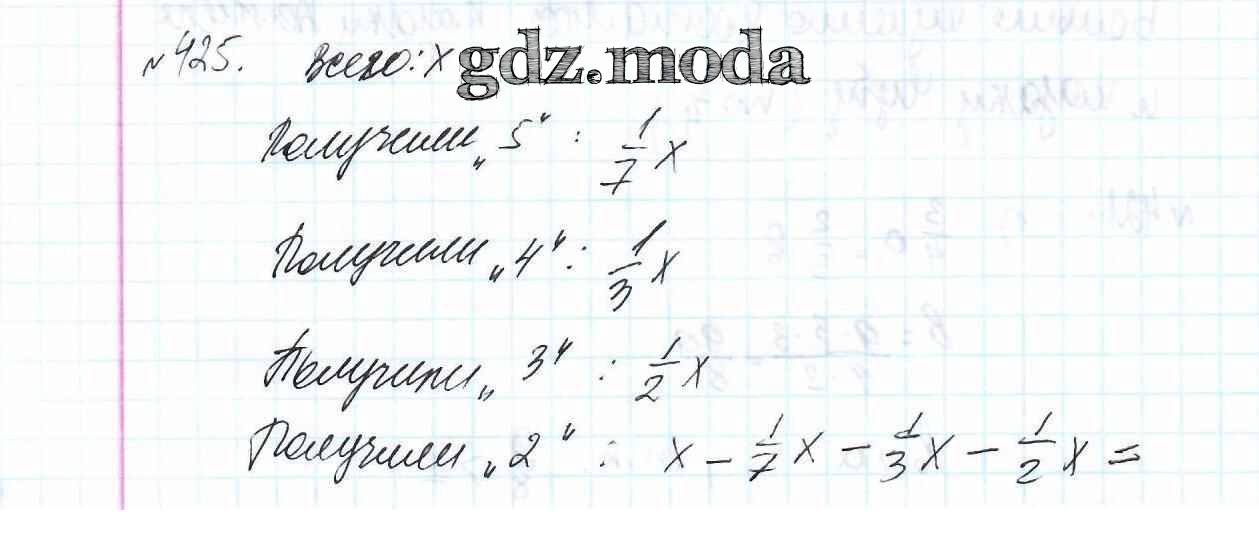 №425. Всего: x gdz.moda
Получили „5“ : 1/7 x
Получили „4“ : 1/3 x
Получили „3“ : 1/2 x
Получили „2“ : x − 1/7 x − 1/3 x − 1/2 x =